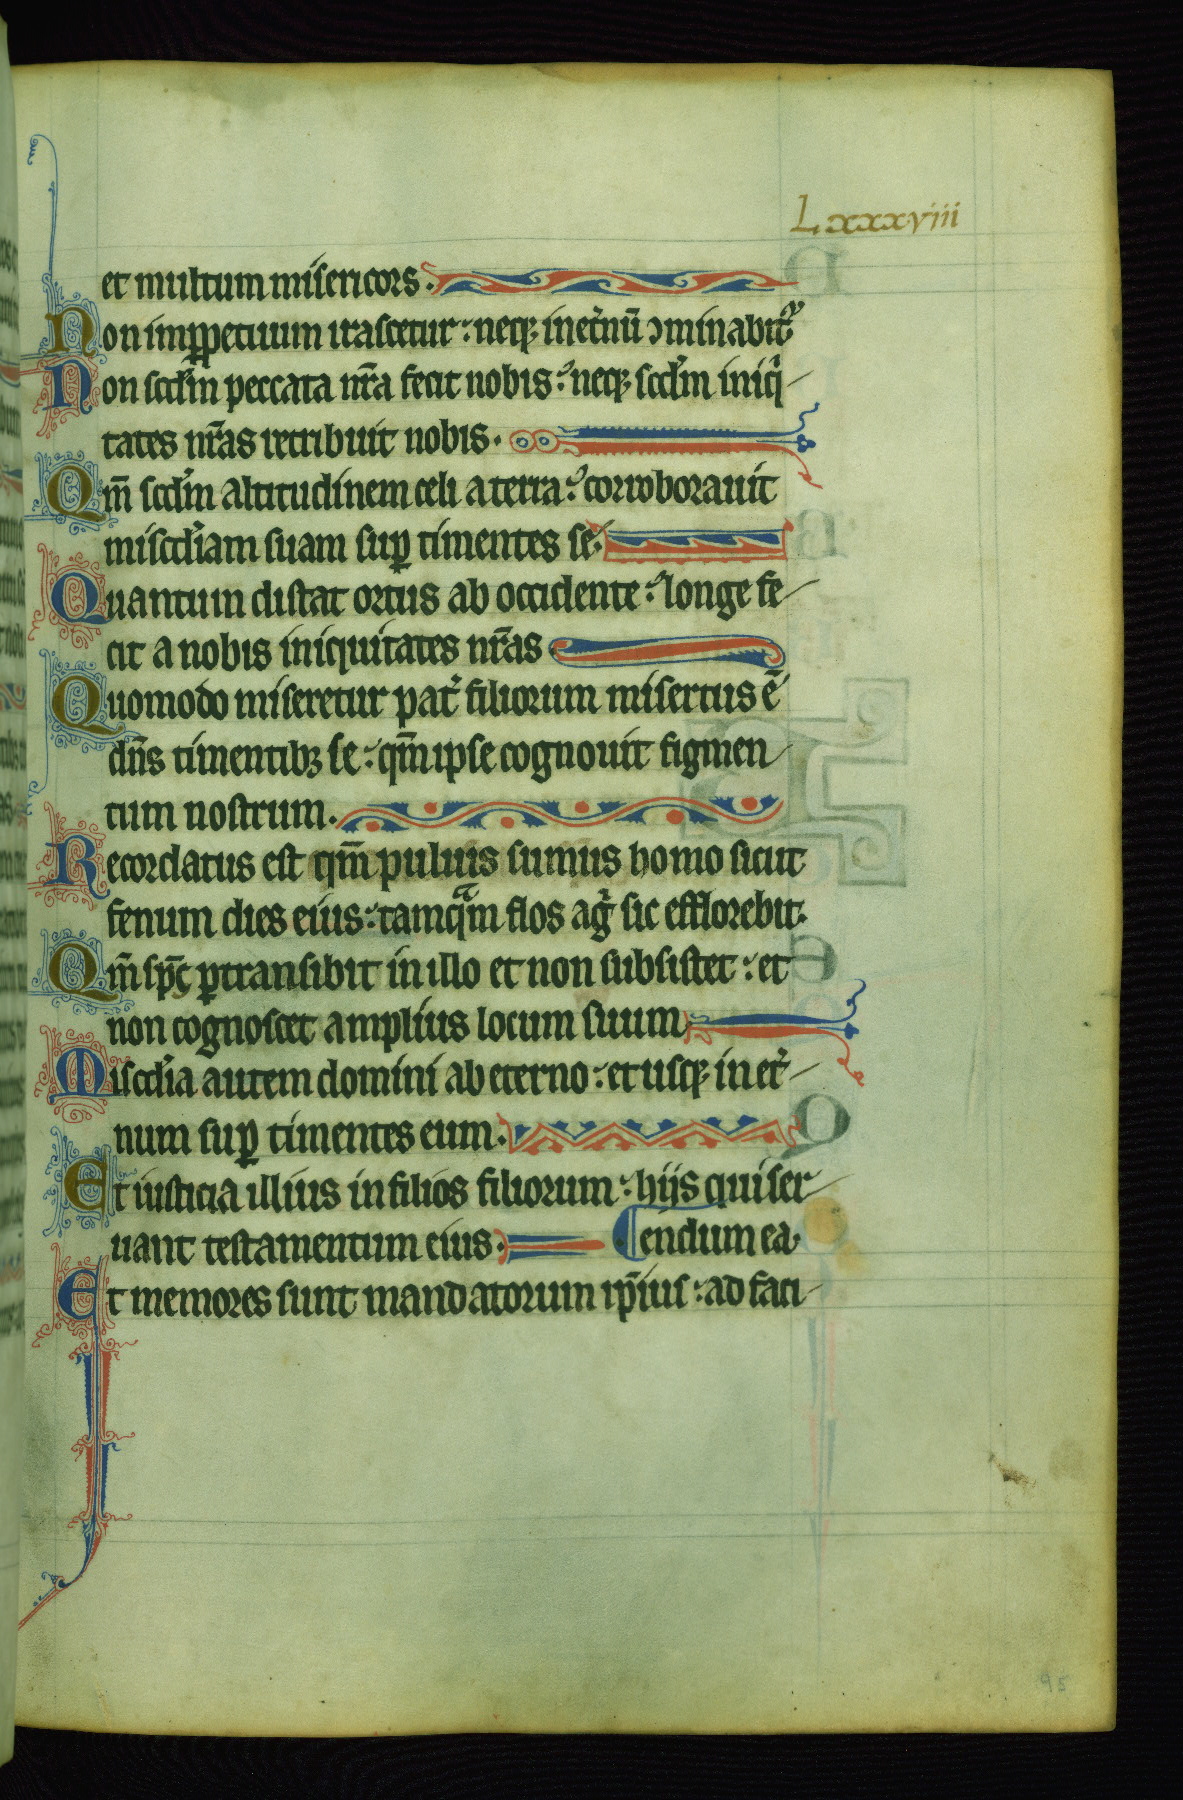 Lxxxviii
et multum misericors.
Non imp̱petuum irascetur: neqꝫ inet̉nũ ↄminabit᷑
Non scdm̉ peccata nr̃a fecit nobis: neqꝫ scdm̉ iniq̉
tates nr̃as retribuit nobis.
Qm̃ scdm̉ altitudinem celi a terra: corroborauit
miscdĩam suam suꝑ timentes se.
Quantum distat ortus ab occidente: longe fe
cit a nobis iniquitates nr̃as
Quomodo miseretur pat̉ filiorum misertus ẽ
dñs timentibꝫ se: qm̃ ipse cognouit figmen
tum nostrum.
Recordatus est qm̃ puluis sumus homo sicut
fenum dies eius: tamqͣm flos ag̉ sic efflorebit.
Qm̃ sp̃c ꝑtransibit in illo et non subsistet: et
non cognoscet amplius locum suum
Miscdĩa autem domini ab eterno: et usqꝫ in et̉
num suꝑ timentes eum.
Et iusticia illius in filios filiorum: hijs qui ser
uant testamentum eius. Cendum ea.
Et memores sunt mandatorum ip̃ius: ad faci
95